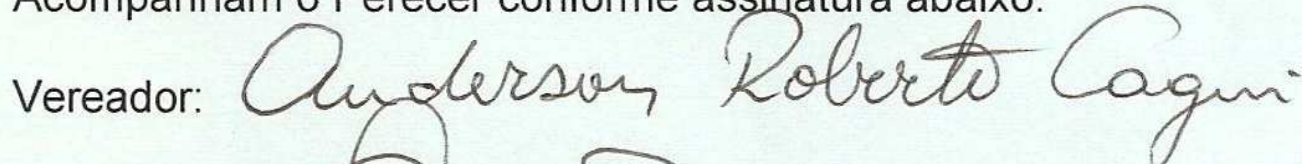 Acompanham o Perecer conforme assinatura abaixo.
Vereador: Anderson Roberto Cagni